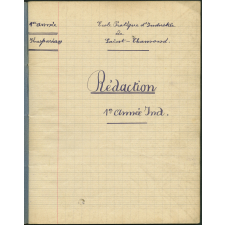 1re année
Ecole Pratique d'Industrie
de
Saint-Chamond.
Rédaction
1re Année Ind.